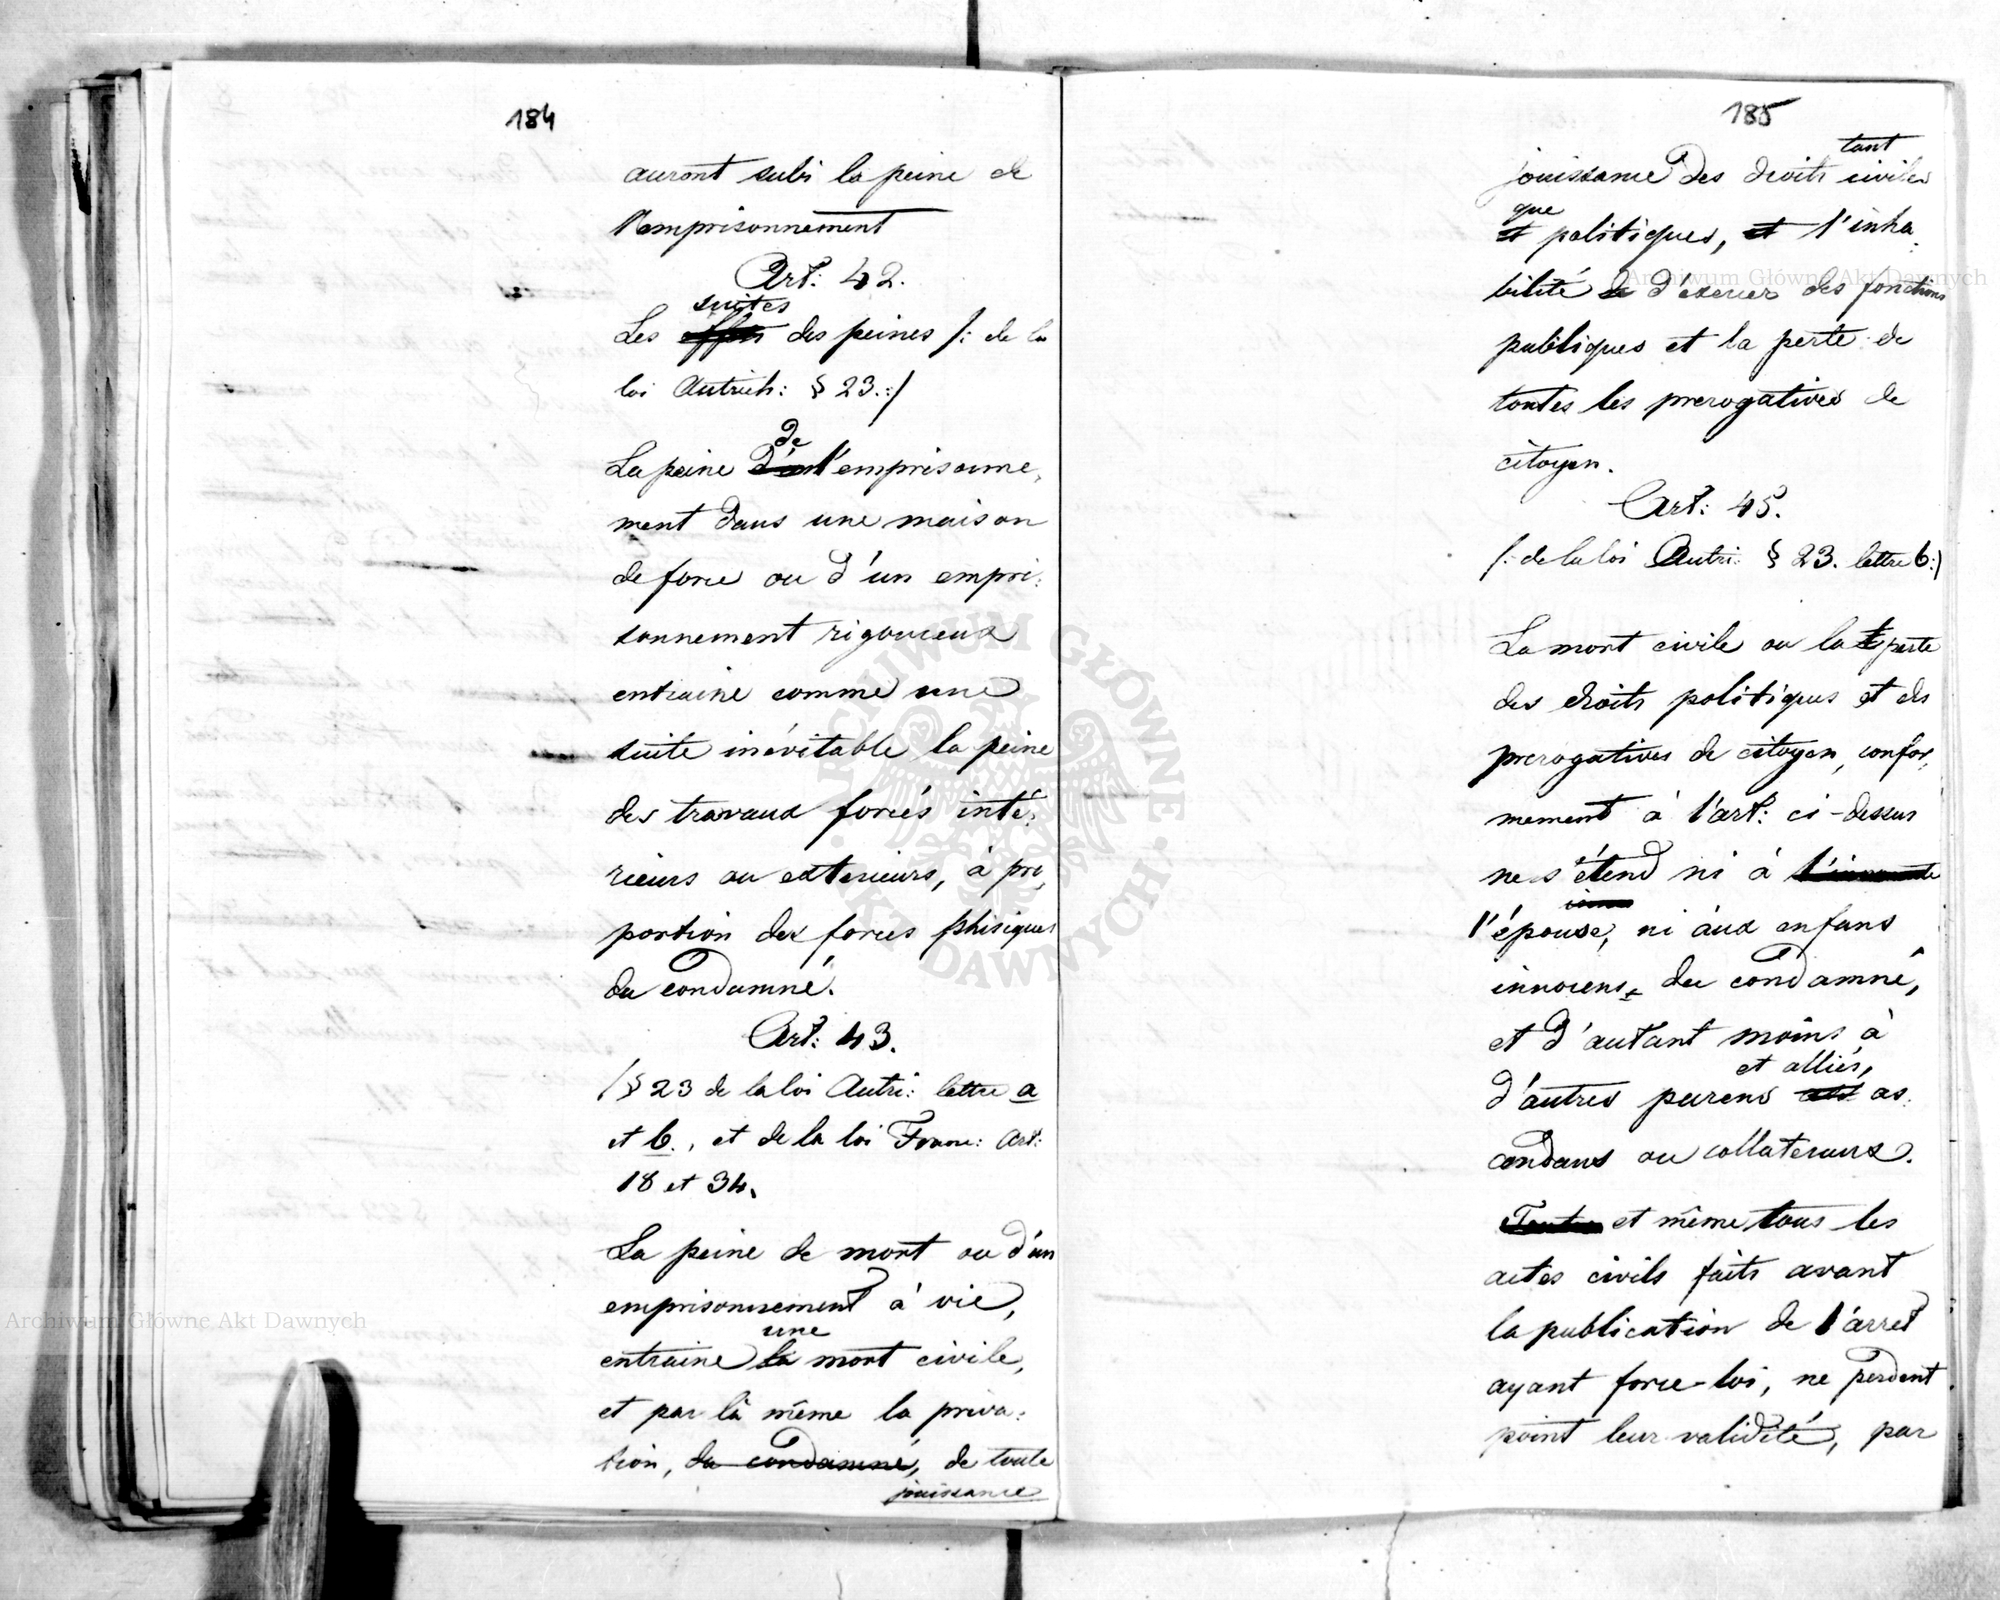 184
auront subi la peine de
l'emprisonnement
Art: 42.
suites
Les effets des peines /: de la
loi Autrich: § 23.:/
de
La peine d'un l'emprisonne,
ment dans une maison
de force ou d'un empri:
sonnement rigoureux
entraine comme une
suite inévitable la peine
des travaux forcés inté:
rieurs ou exterieurs, à pro,
portion des forces phisiques
du condamné.
Art: 43.
/§ 23 de la loi Autri: lettre a
et b., et de la loi Franc: Art:
18 et 34.
La peine de mort ou d'un
emprisonnement à vie,
une
entraine la mort civile,
et par là même la priva:
tion, du condamné, de toute
jouissance
185
tant
jouissance des droits civiles
que
et politiques, et l'inha:
bilité de d'exercer des fonctions
publiques et la perte de
toutes les prerogatives de
citoyen.
Art: 45.
/: de la loi Autri: § 23. lettre b:/
La mort civile ou la perte
des droits politiques et des
prerogatives de citoyen, confor,
mement à l'art: ci-dessus
ne s'étend ni à
l'épouse, ni aux enfans
innocens, du condamné,
et d'autant moins à
et alliés,
d'autres parens as:
cendans ou collateraux.
et même tous les
actes civils faits avant
la publication de l'arret
ayant force-loi, ne perdent
point leur validité, par
Archiwum Główne Akt Dawnych
Archiwum Główne Akt Dawnych
ARCHIWUM GŁÓWNE AKT DAWNYCH